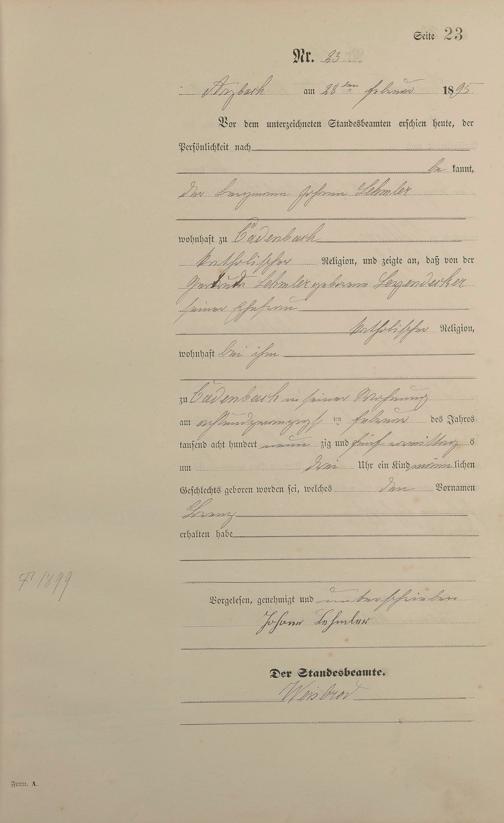 Seite 23
Nr. 23
Arzbach am 28 ten Februar 1895
Vor dem unterzeichneten Standesbeamten erschien heute, der
Persönlichkeit nach
be kannt,
der Bergmann Johann Lehmler
wohnhaft zu Cadenbach
katholischer Religion, und zeigte an, daß von der
Gertrud Lehmler geborene Legendecker
seiner Ehefrau
katholischer Religion,
wohnhaft bei ihm
zu Cadenbach in seiner Wohnung
am achtundzwanzigsten Februar des Jahres
tausend acht hundert neun zig und fünf vormittags
um drei Uhr ein Kind männlichen
Geschlechts geboren worden sei, welches den Vornamen
Lorenz
erhalten habe
Vorgelesen, genehmigt und unterschrieben
Johann Lehmler
Der Standesbeamte.
Weisbrod
1899
Form. A.